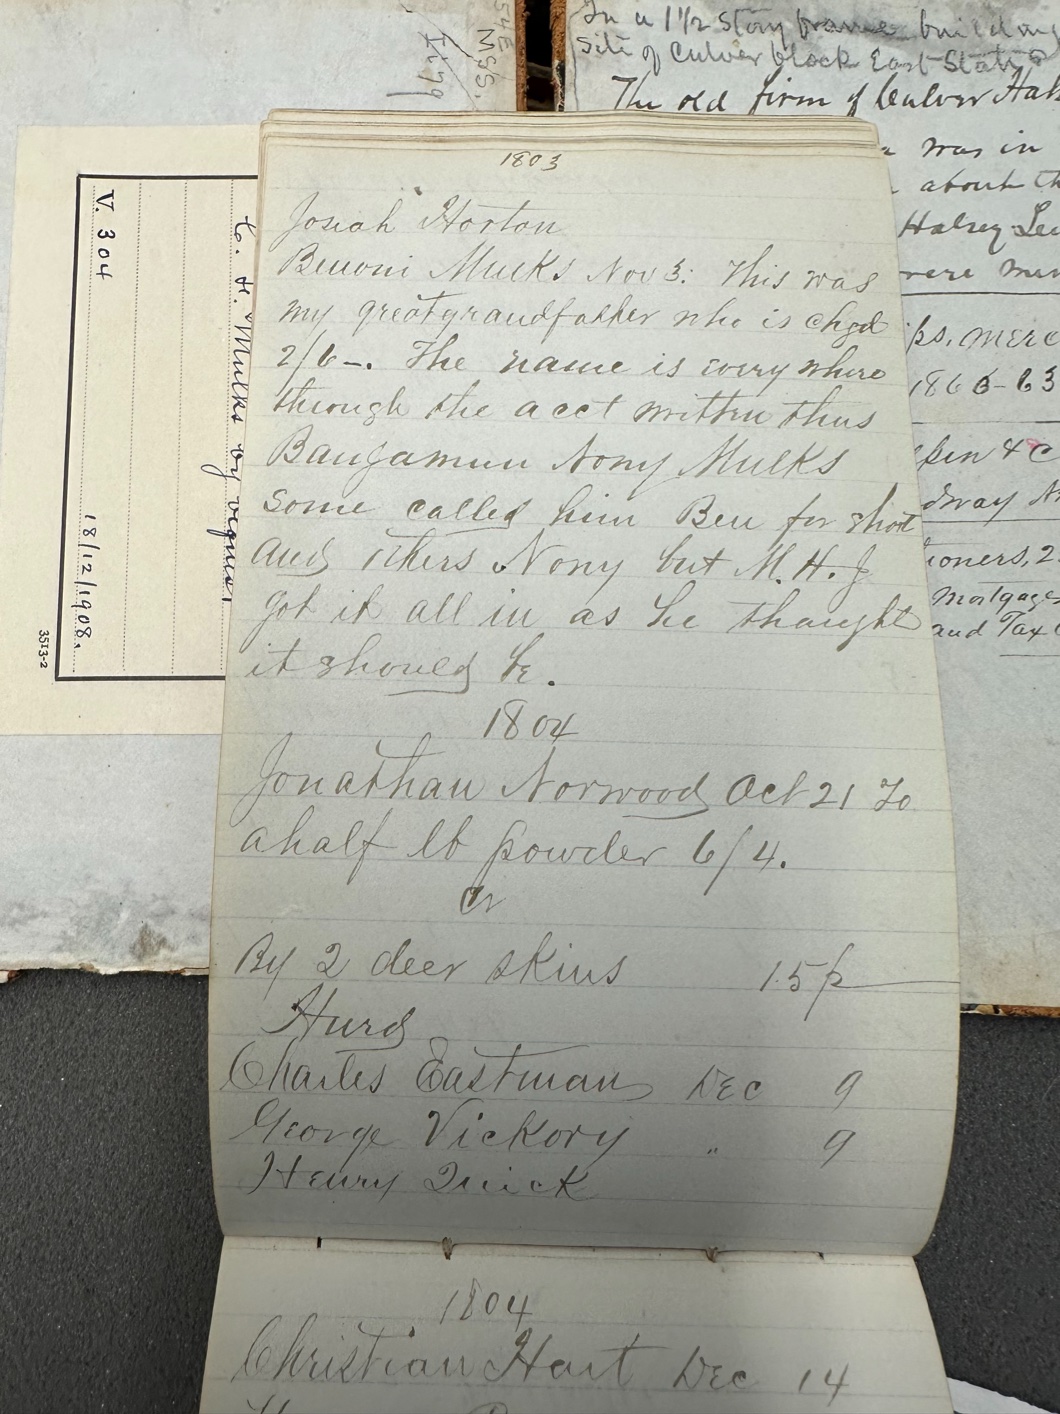 54E
MSS.
In a 1 1/2 story frame building
site of Culver block East State
The old firm of Culver
was in
about
Halsey
were
merc
1863
Mortgages
and Tax
V. 304
C. H. Mulks by request
18/12/1908.
3513-2
1803
Josiah Horton
Benoni Mulks Nov 3: This was
my greatgrandfather who is chgd
2/6-. The name is every where
through the acct written thus
Bangamun Nony Mulks
some called him Ben for short
and others Nony but M. H. J
got it all in as he thaught
it should be.
1804
Jonathan Norwood Oct 21 To
a half lb powder 6/4.
Cr
By 2 deer skins 15/p
Hurd
Charles Eastman Dec 9
George Vickory " 9
Henry Quick
1804
Christian Hart Dec 14